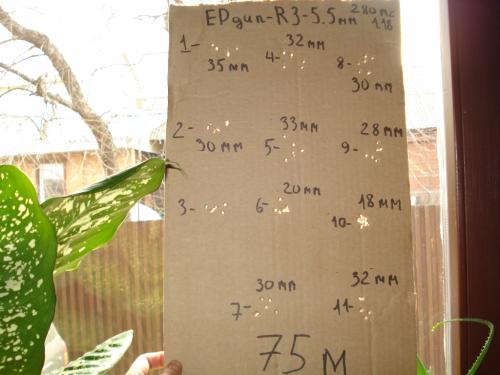 EDgun-R3-5.5мм 280мс
1,18
1- 35мм
4- 32мм
8- 30мм
2- 30мм
5- 33мм
9- 28мм
3-
6- 20мм
10- 18мм
7- 30мм
11- 32мм
75м